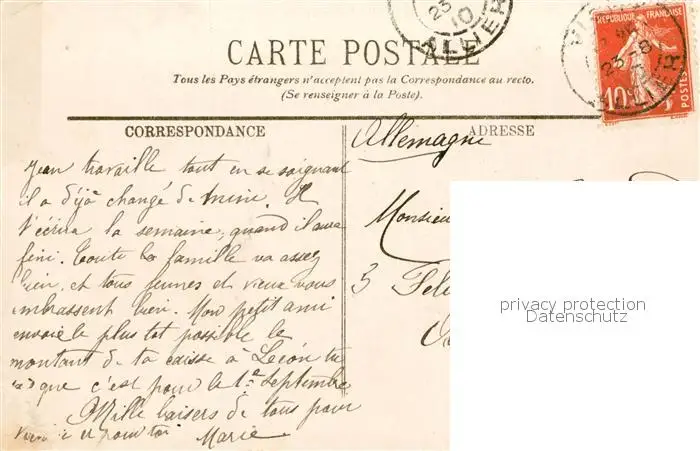 CARTE POSTALE
Tous les Pays étrangers n'acceptent pas la Correspondance au recto.
(Se renseigner à la Poste).
CORRESPONDANCE
Jean travaille tout en se soignant
il a déjà changé de mine. Il
t'écrira la semaine, quand il aura
fini. Toute la famille va assez
bien, et tous jeunes et vieux vous
embrassent bien. Mon petit ami
envoie le plus tot possible le
montant de ta caisse à Léon tu
que c'est pour le 1er Septembre
Mille baisers de tous pour
et pour toi Marie
ADRESSE
Allemagne
Monsieu
3 Fel
REPUBLIQUE FRANÇAISE
10c
POSTES
23
10
ALLIER
23-8
ALLIER
privacy protection
Datenschutz